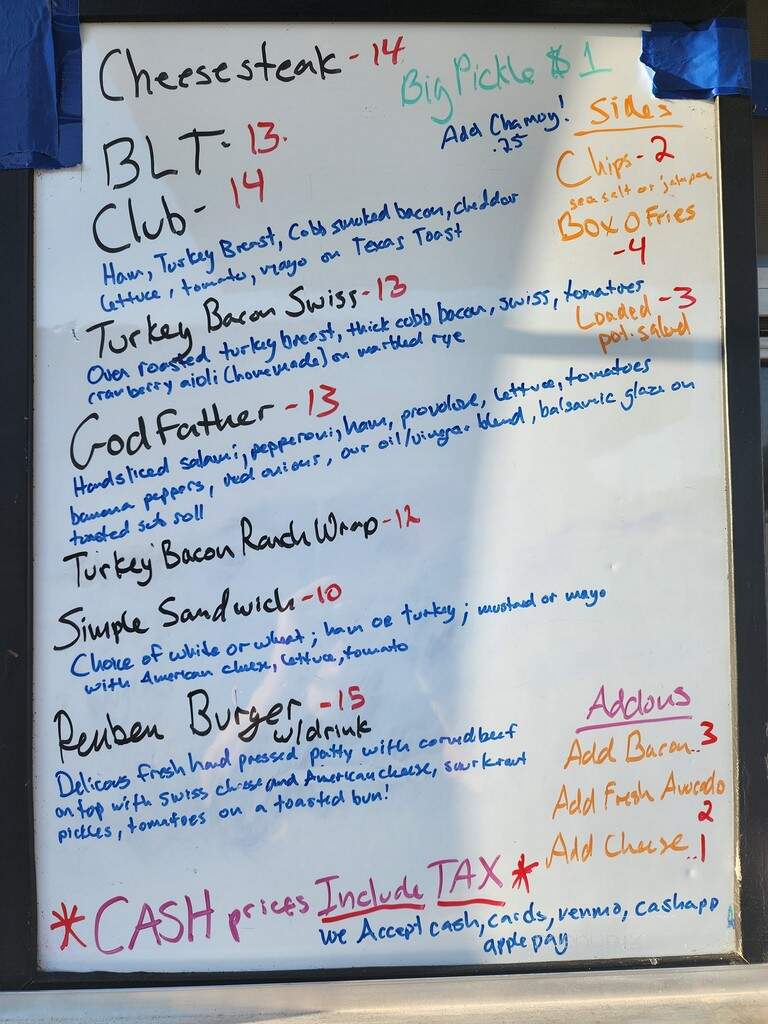 Cheesesteak - 14
Big Pickle $1
Add Chamoy!
.25
BLT - 13.
Club - 14
Ham, Turkey Breast, Cobb smoked bacon, cheddar
lettuce, tomato, mayo on Texas Toast
Sides
Chips - 2
sea salt or jalapen
Box O Fries
- 4
Loaded - 3
pot. salad
Turkey Bacon Swiss - 13
Oven roasted turkey breast, thick cobb bacon, swiss, tomatoes
cranberry aioli (homemade) on marbled rye
Godfather - 13
Handsliced salami, pepperoni, ham, provolone, lettuce, tomatoes
banana peppers, red onions, our oil/vinegar blend, balsamic glaze on
toasted sub roll
Turkey Bacon Ranch Wrap - 12
Simple Sandwich - 10
Choice of white or wheat; ham or turkey; mustard or mayo
with American cheese, lettuce, tomato
Reuben Burger - 15
w/drink
Delicous fresh hand pressed patty with corned beef
on top with swiss cheese and American cheese, sourkraut
pickles, tomatoes on a toasted bun!
Addons
Add Bacon.. 3
Add Fresh Avocado
2
Add Cheese ..1
* CASH prices Include TAX *
we Accept cash, cards, venmo, cashapp
apple pay